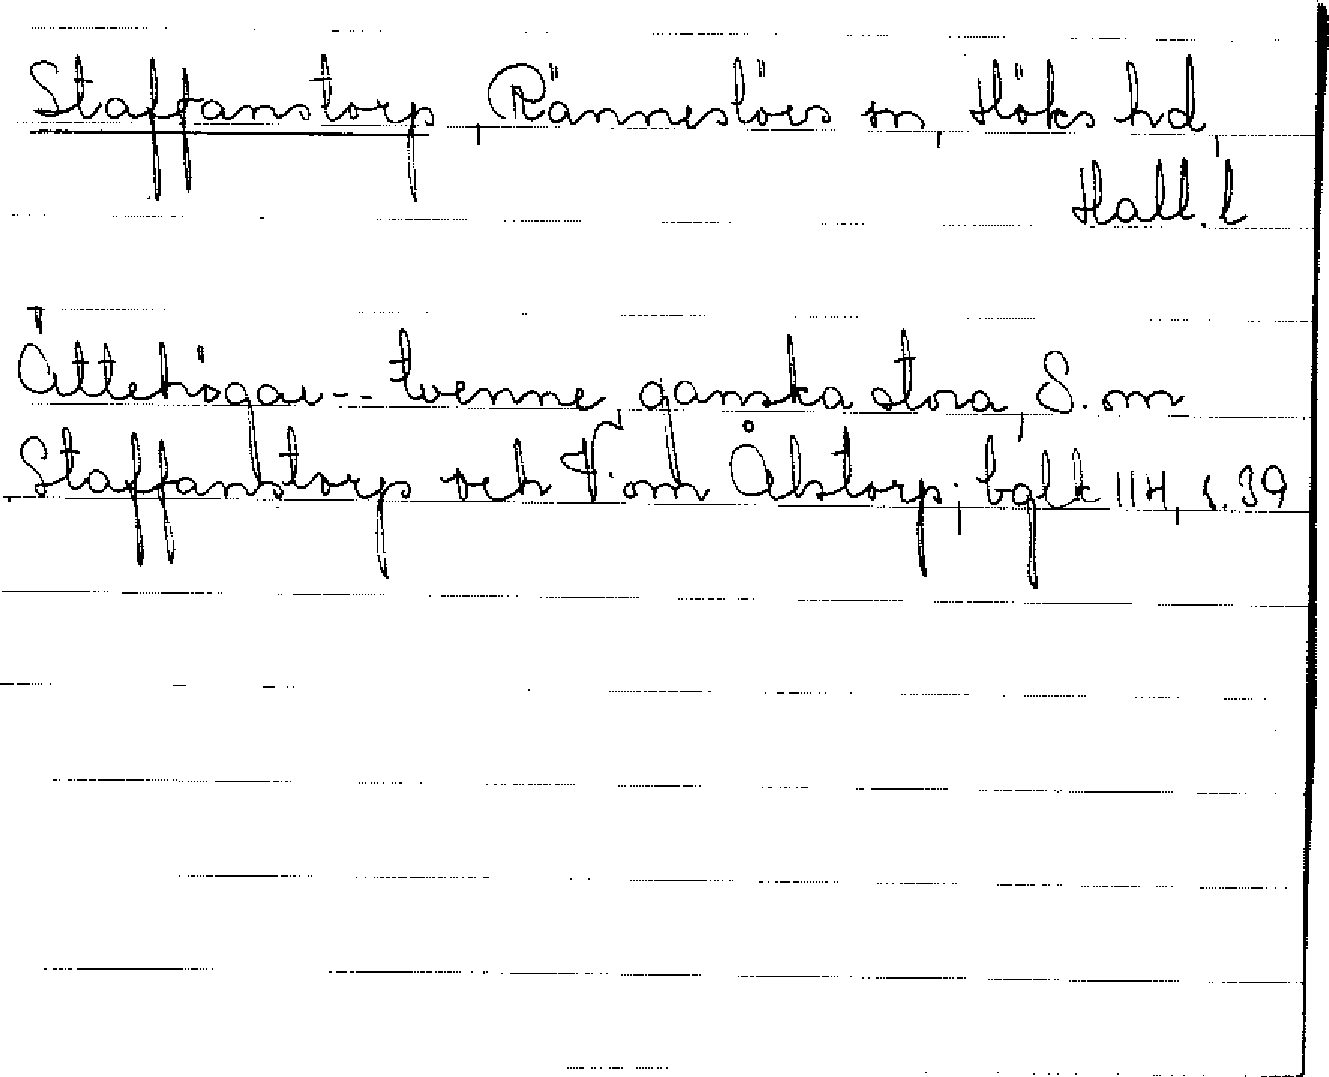 Staffanstorp, Ränneslövs sn, Höks hd,
Hall. l
Ättehögar -- tvenne ganska stora, S. om
Staffanstorp och V. om Åbstorp; bglk 114, s. 39